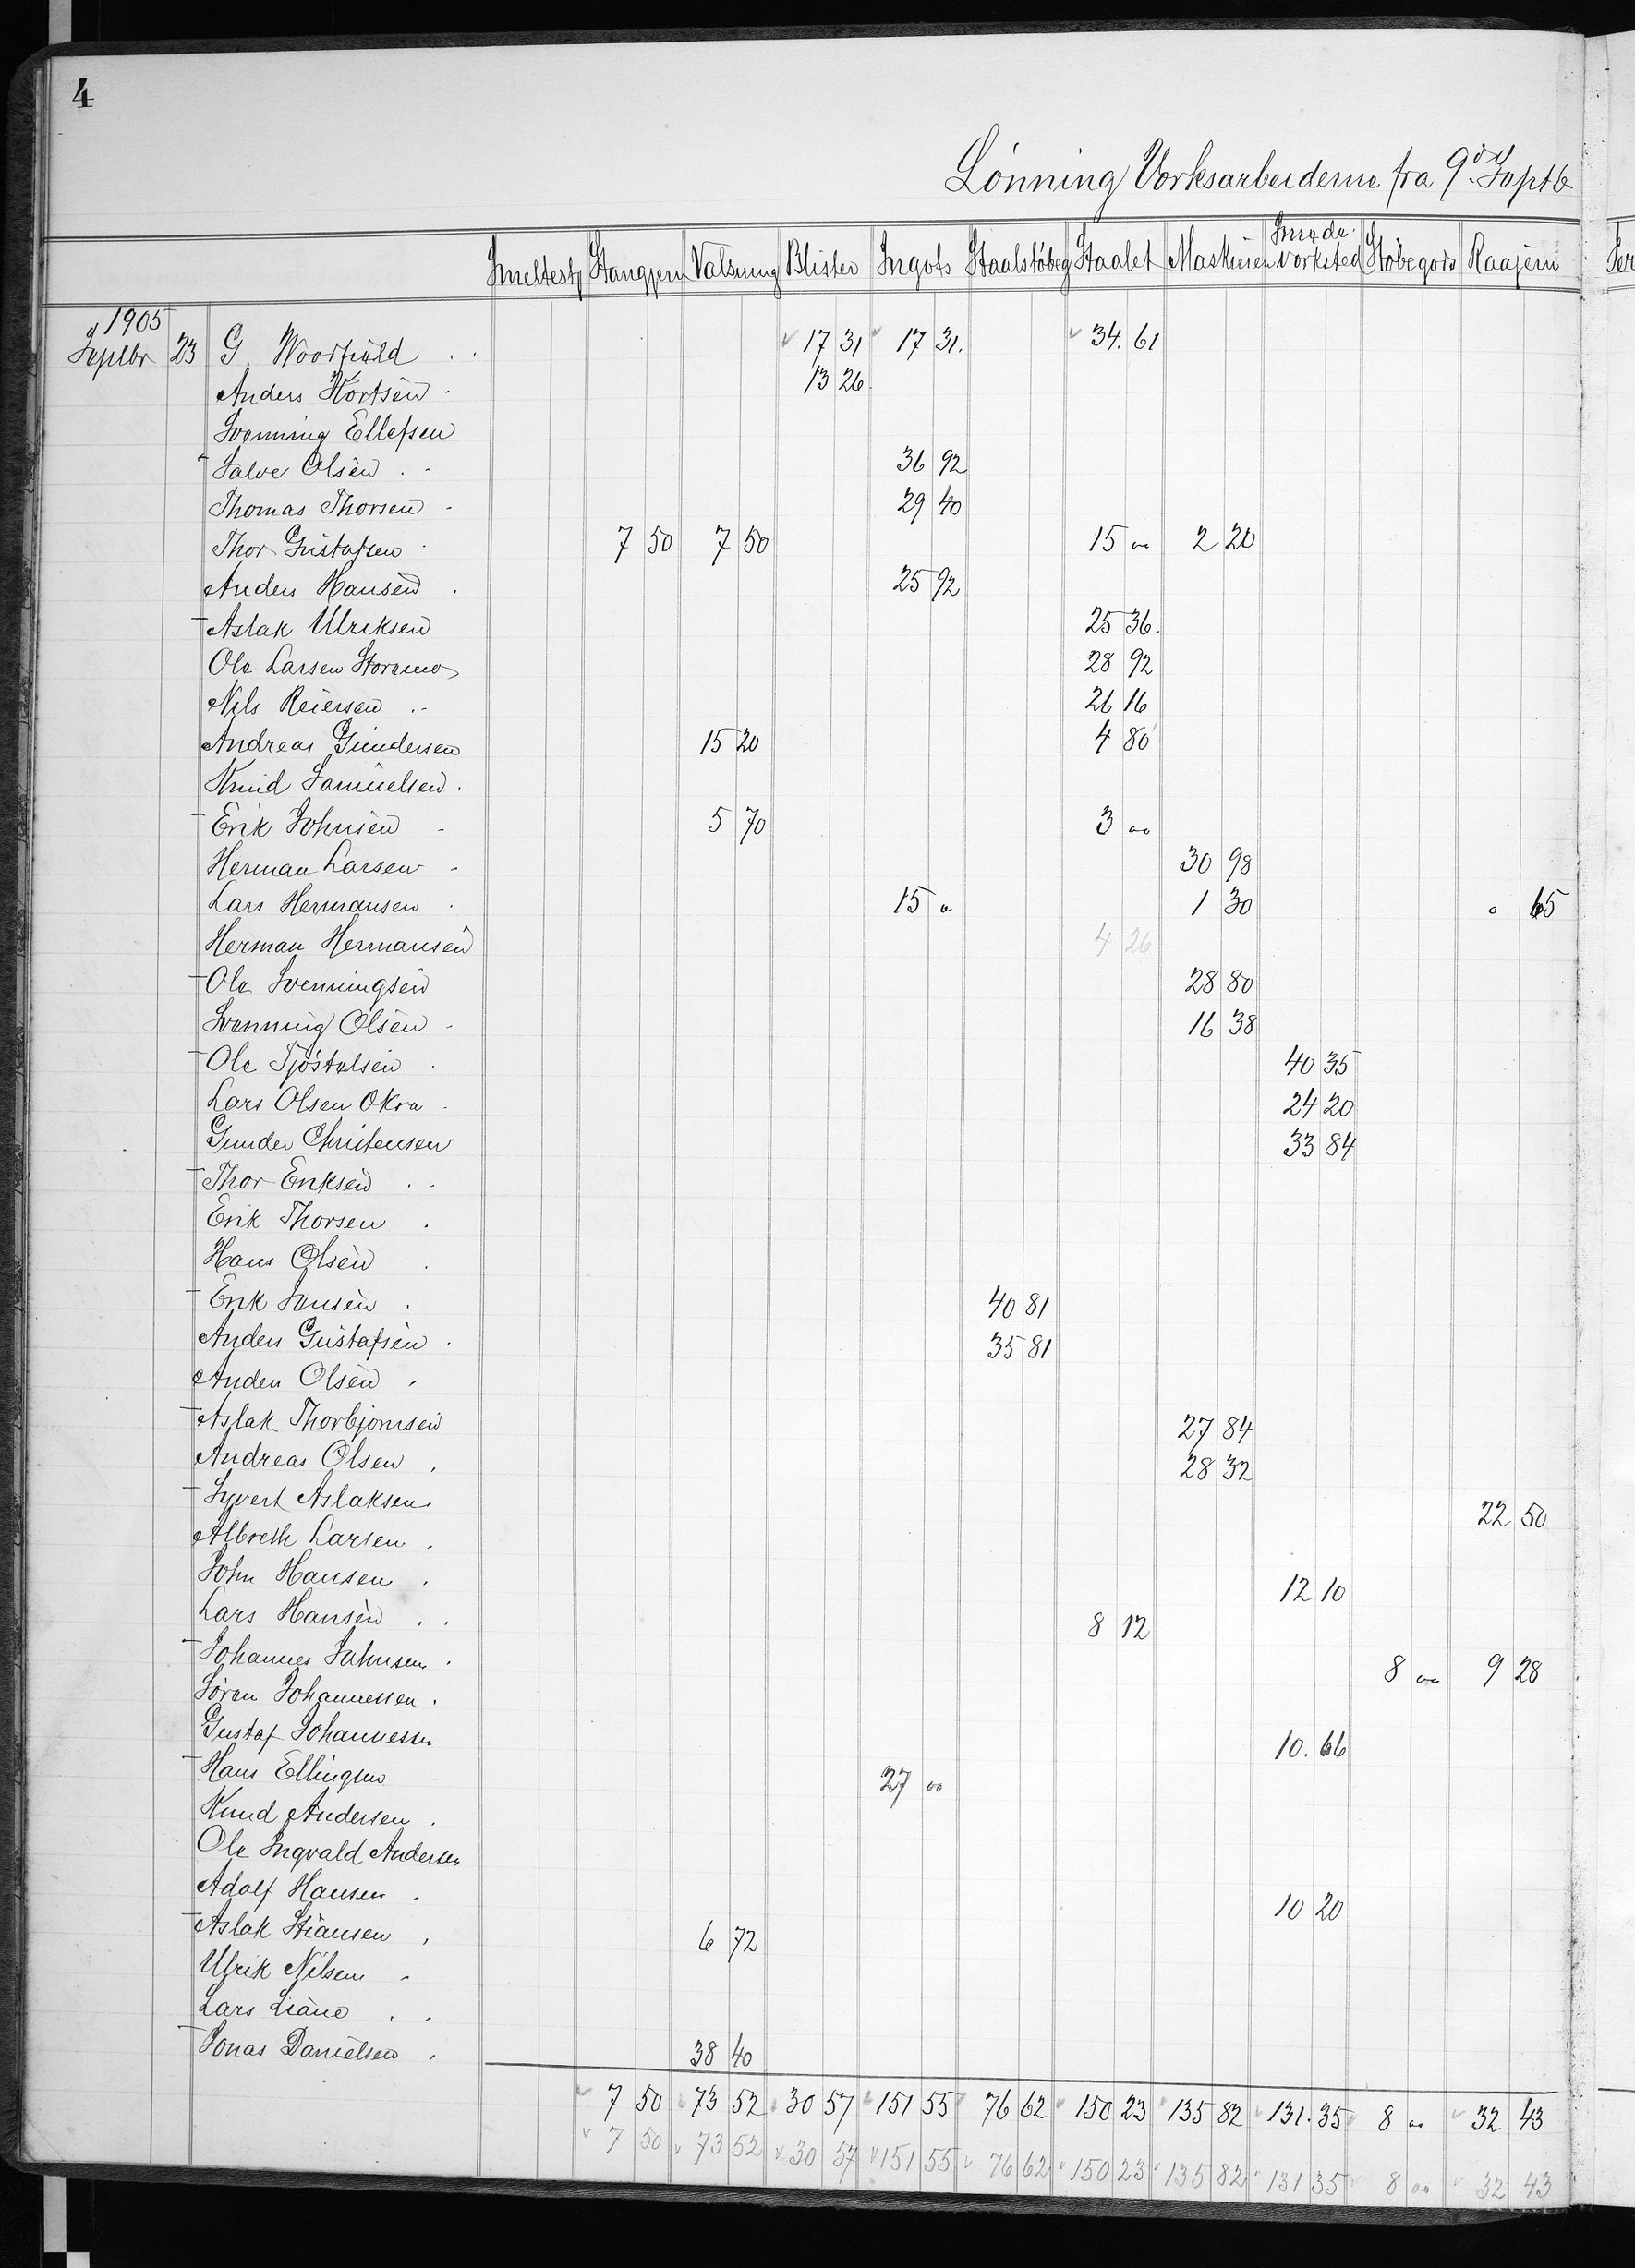 4
Lønning Verksarbeiderne fra 9de Septb
Smeltest Stangjern Valsning Blister Ingots Staalstøbeg Staalet Maskinen Smede-verksted Støbegods Raajern
1905
Septbr 23 G. Woodfield . . 17 31 17 31. 34. 61
Anders Hortsen . 13 26.
Svenning Ellefsen
Salve Olsen . . 36 92
Thomas Thorsen . 29 40
Thor Gustafsen . 7 50 7 50 15 00 2 20
Anders Hansen . 25 92
Aslak Ulriksen 25 36.
Ole Larsen Storemo 28 92
Nils Reiersen . . 26 16
Andreas Gundersen 15 20 4 80
Knud Samuelsen .
Erik Johnsen . 5 70 3 00
Herman Larsen . 30 98
Lars Hermansen . 15 0 1 30 0 65
Herman Hermansen 4 26
Ole Svenningsen 28 80
Svenning Olsen . 16 38
Ole Tjøstølsen . 40 35
Lars Olsen Okra . 24 20
Gunder Christensen 33 84
Thor Eriksen . .
Erik Thorsen .
Hans Olsen .
Erik Jensen . 40 81
Anders Gustafsen . 35 81
Anders Olsen .
Aslak Thorbjørnsen 27 84
Andreas Olsen . 28 32
Syvert Aslaksen 22 50
Albreth Larsen .
John Hansen . 12 10
Lars Hansen . . 8 12
Johannes Johnsen . 8 00 9 28
Søren Johannessen .
Gustaf Johannessen 10. 66
Hans Ellingsen 27 00
Knud Andersen .
Ole Ingvald Andersen
Adolf Hansen . 10 20
Aslak Stiansen . 6 72
Ulrik Nilsen .
Lars Liane . .
Jonas Danielsen . 38 40
7 50 73 52 30 57 151 55 76 62 150 23 135 82 131. 35 8 00 32 43
7 50 73 52 30 57 151 55 76 62 150 23 135 82 131 35 8 00 32 43